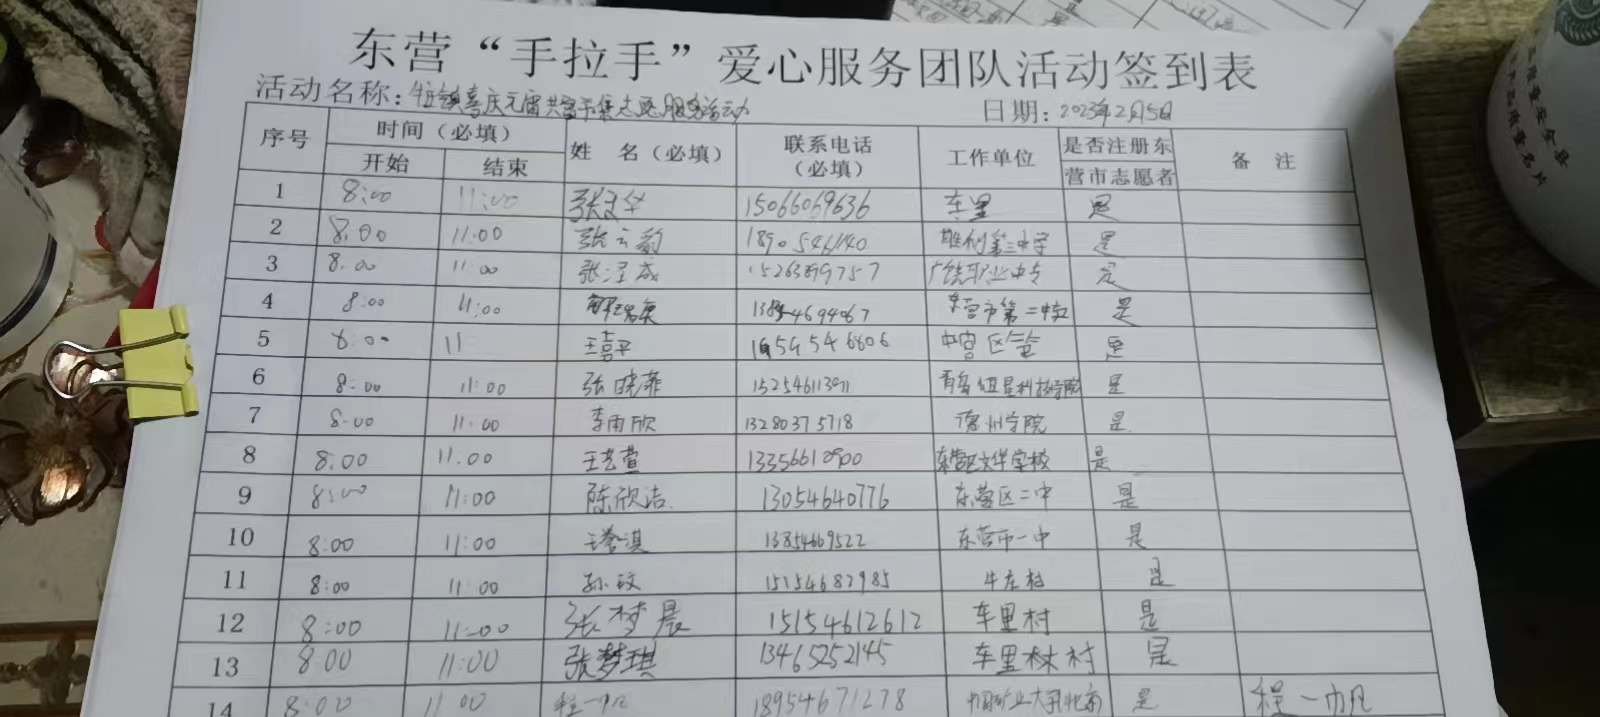 东营“手拉手”爱心服务团队活动签到表
活动名称：牛庄镇喜庆元宵 志愿服务活动 日期：2023年2月5日
序号 时间（必填） 姓 名（必填） 联系电话（必填） 工作单位 是否注册东营市志愿者 备 注
开始 结束
1 8:00 11:00 张文华 15066069636 车里 是
2 8:00 11:00 张云韵 是
3 8:00 11:00 张 成 15263899757 广饶职业中专 是
4 8:00 11:00 东营市第二中 是
5 8:00 11 王喜平 是
6 8:00 11:00 张晓菲 青岛恒星科技学院 是
7 8:00 11:00 李雨欣 13280375718 德州学院 是
8 8:00 11:00 王艺萱 13356612900 东营区文华学校 是
9 8:00 11:00 陈欣洁 13054640776 东营区二中 是
10 8:00 11:00 王 淇 13854669522 东营市一中 是
11 8:00 11:00 孙玟 15154682985 牛庄村 是
12 8:00 11:00 张梦晨 15154612612 车里村 是
13 8:00 11:00 张梦琪 13465252145 车里村 是
14 8:00 11:00 程一帆 18954671278 中国矿业大学北京 是 程一帆